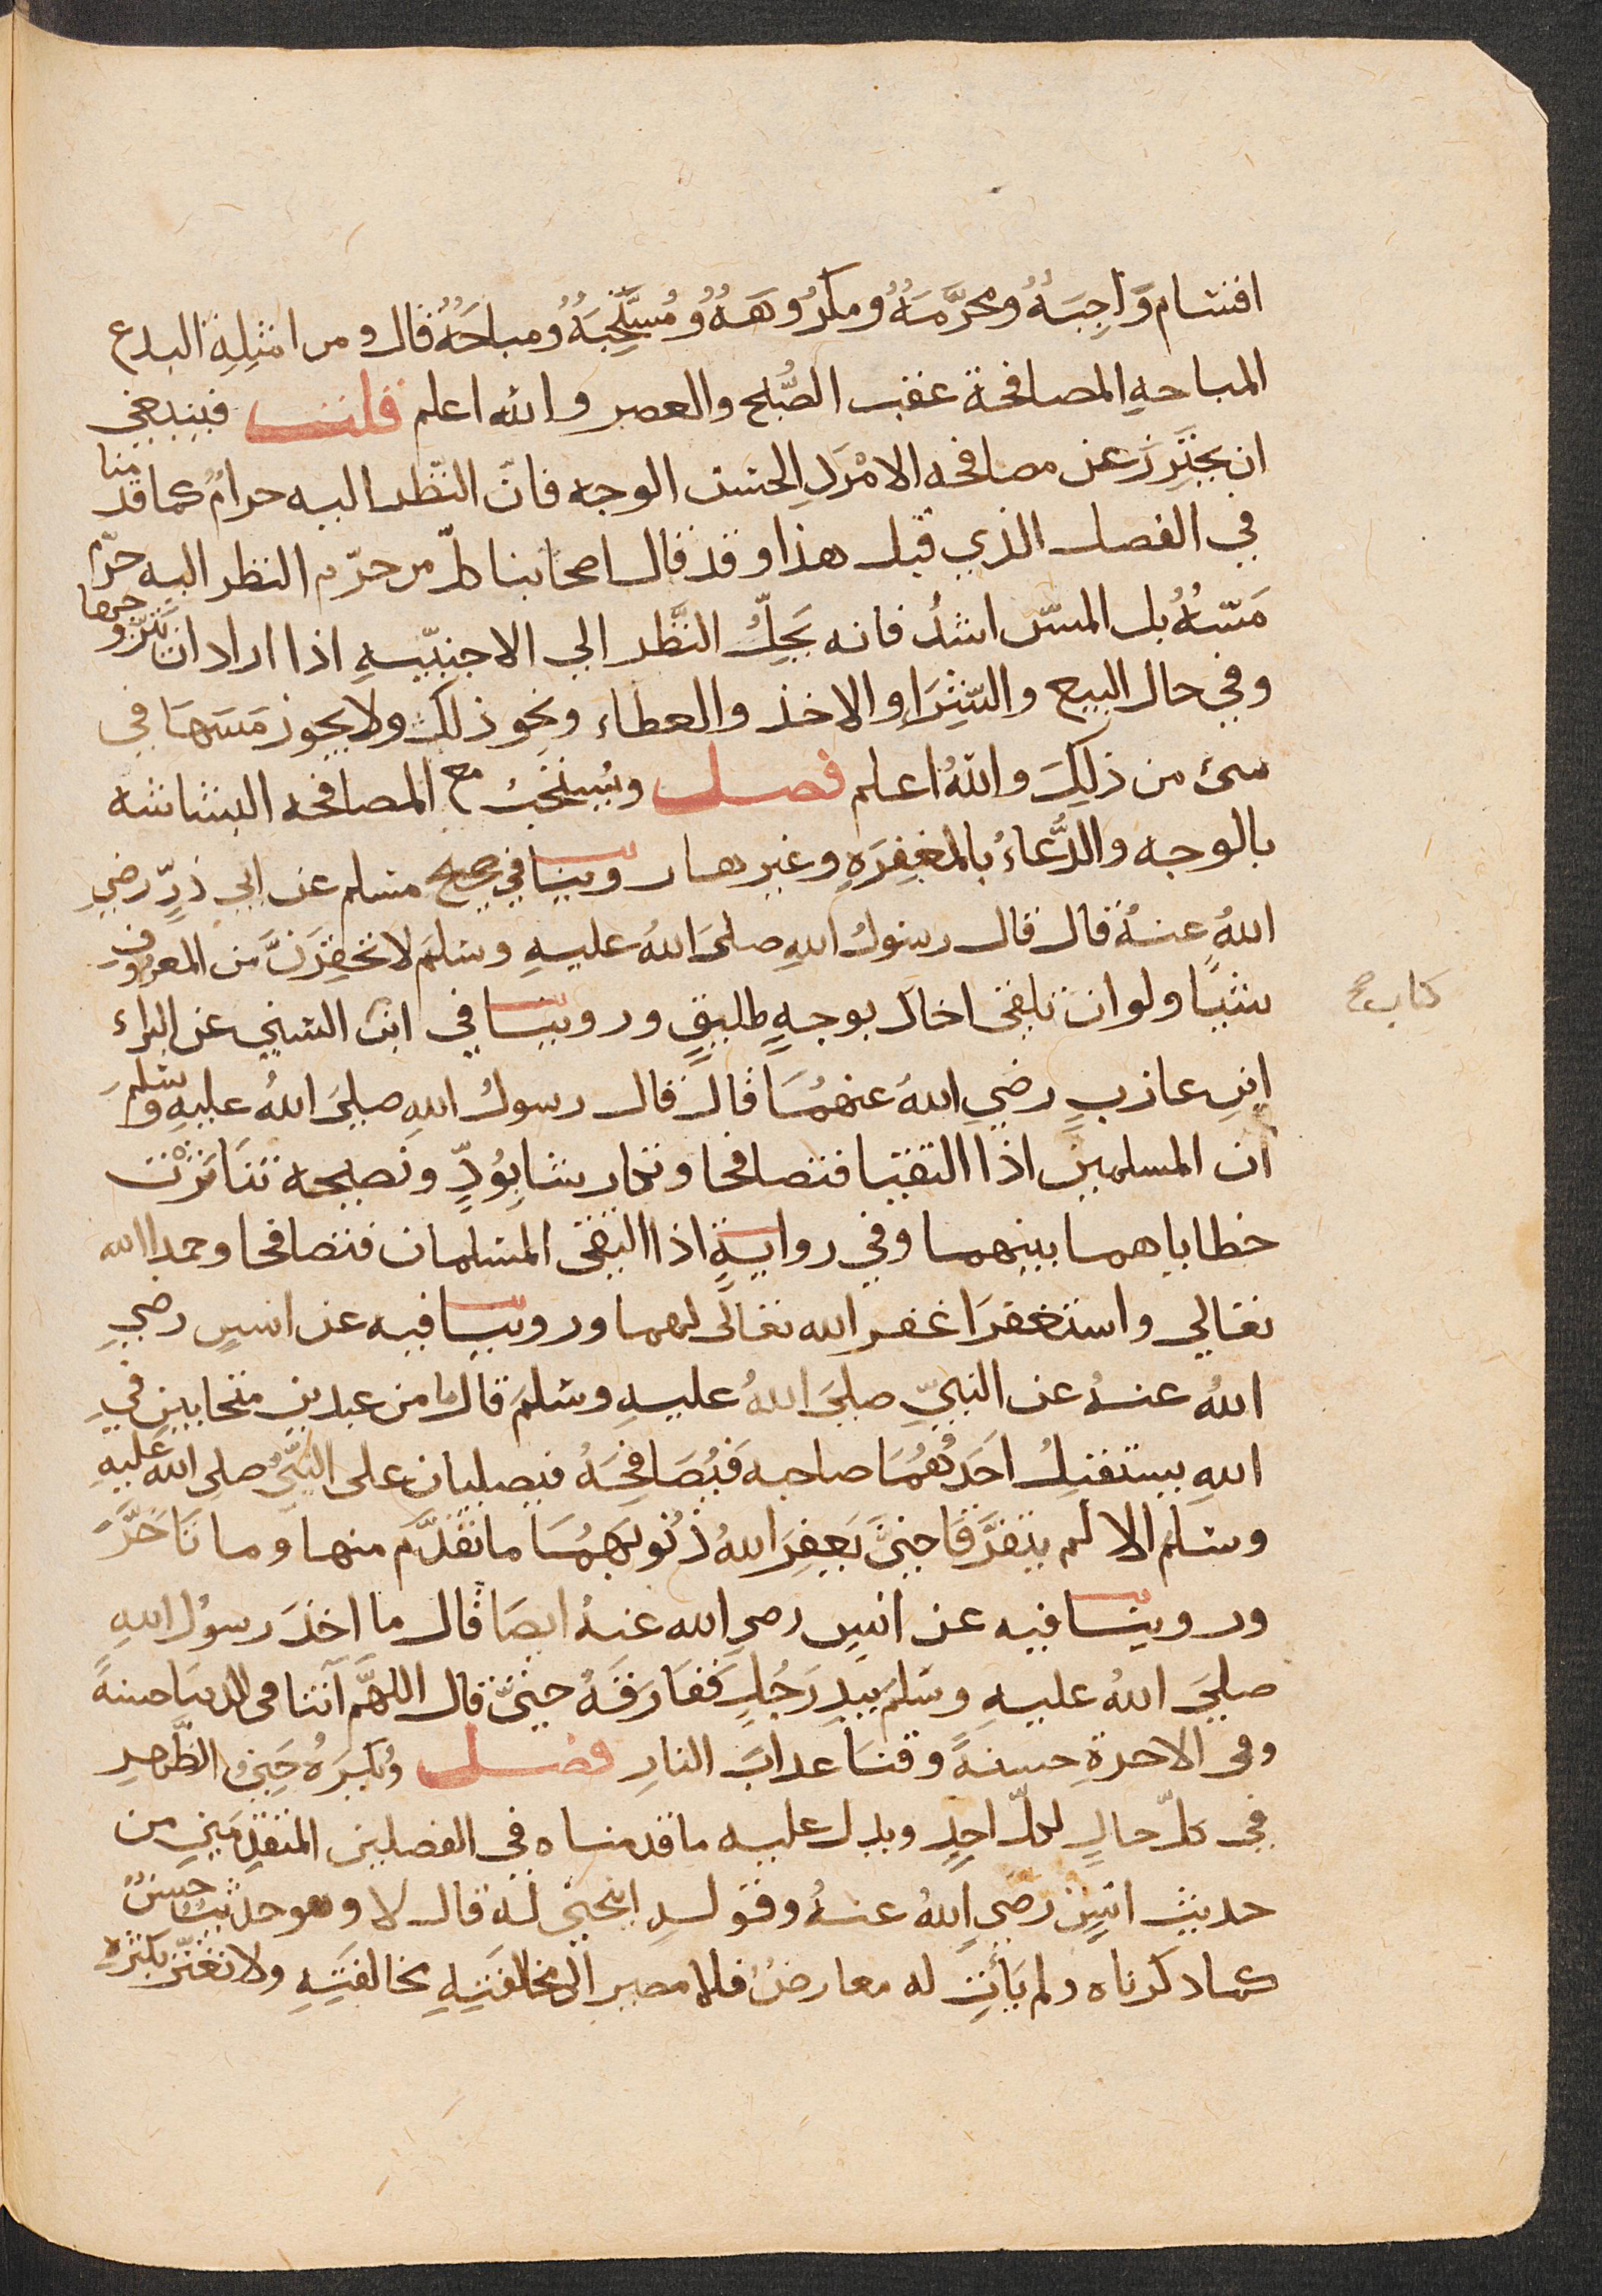 اقسام وَاجِبَةٌ ومحرَّمَةٌ ومكرُوهَةٌ ومُسْتَحِبَّةٌ ومباحَةٌ قال ومن امثِلِةِ البدع
المباحةِ المصافحة عقب الصُّبح والعصر والله اعلم قلت فينبغي
ان يحتَرِزَ عن مصافحه الامْرَدِ الحسن الوجه فانّ النّظر اليه حرامٌ كما قدمنا
في الفصل الذي قبل هذا وقد قال اصحابنا كلّ من حرّم النظر اليه حرّم
مَسّهُ بل المسّ اشدُ فانه يَحِلُّ النَّظر الي الاجنبيّةِ اذا اراد ان يتزّوجها
وفي حال البيع والشّرَاءِ والاخذ والعطاء ونحو ذلك ولا يجوز مَسهَا في
شئ من ذلِكَ واللهُ اعلم فصل ويُستحَبُ مع المصافحه البشاشه
بالوجه والدُّعاءُ بالمغفِرَةِ وغيرها روينا في صحيح مسلم عن ابي ذرٍّ رضي
اللهُ عنهُ قال قال رسولُ اللهِ صلىَ اللهُ عليهِ وسلمَ لا تحقِرَنَّ من المعروف
شيًا ولو ان تلقى اخاك بوجهٍ طليقٍ وروينا في ابن السني عن البراء
كتاب صح
ابنِ عازبٍ رضي اللهُ عنهُمَا قال قال رسولُ اللهِ صليَ اللهُ عليهِ وسلمَ
ان المسلمين اذا التقيا فتصافحا وتكاشرا بِوُدٍّ ونصيحه تنَاثرْت
خطاياهما بينهما وفي روايةٍ اذا التقى المسلمان فتصافحا وحمدا الله
تعالي واستغفرَا غفر الله تعالى لهما وروينا فيه عن انسٍ رضي
اللهُ عنهُ عن النبيِّ صليَ اللهُ عليهِ وسلمَ قال ما من عبدين متحابين في
اللهِ يستقبلُ احَدُهُمَا صاحبه فَيُصَافِحَهُ فيصليان على النبيِّ صلى الله عليهِ
وسلم الا لم يتفرَّقا حتيَّ يَغفِرَ اللهُ ذُنُوبَهُمَا ما تقدَّم منها وما تَاخَّرَ
وروينا فيه عن انسٍ رضي الله عنهُ ايضَا قال ما اخذَ رسوُل اللهِ
صليَ اللهُ عليهِ وسلم بيدِ رَجُلٍ ففَارَقَهُ حتيَّ قال اللهمَّ آتنا في الدنيَا حسنةً
وفى الاخرةِ حسنةً وقنَا عدابَ النارِ فصل ويُكرَهُ حَنيُ الظَّهرِ
في كلّ حالٍ لكلّ احِدٍ ويدل عليه ما قدمناه في الفصلين المتقدِّمَينِ من
حديث انسٍ رضي اللهُ عنهُ وقولهِ اينحني لهُ قال لا وهو حديث حسنٌ
كما دكرناه ولم يَأتِ له معارضٌ فلا مصير الا مخالفتِهِ مخالفتِهِ ولا تغتّر بكثره